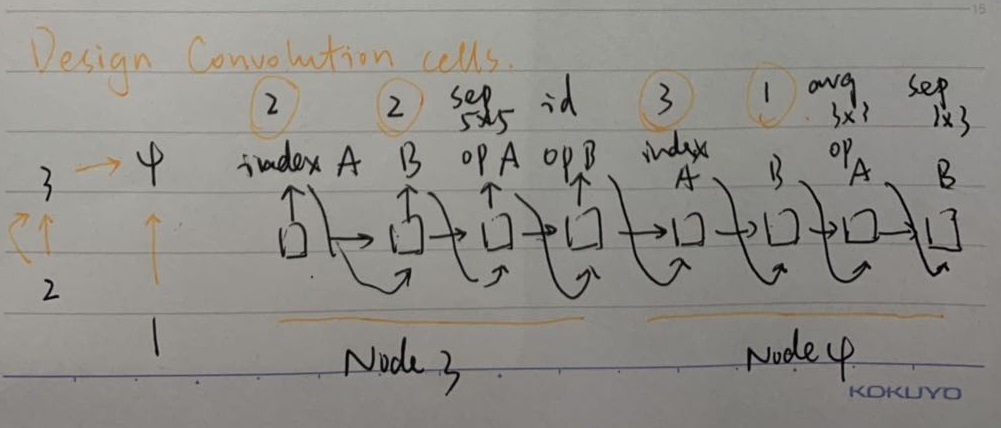 15
Design Convolution cells.
2 2 sep 5x5 id 3 1 avg 3x3 sep 3x3
3 4 index A B op A op B index A B op A B
2
1
Node 3 Node 4
KOKUYO